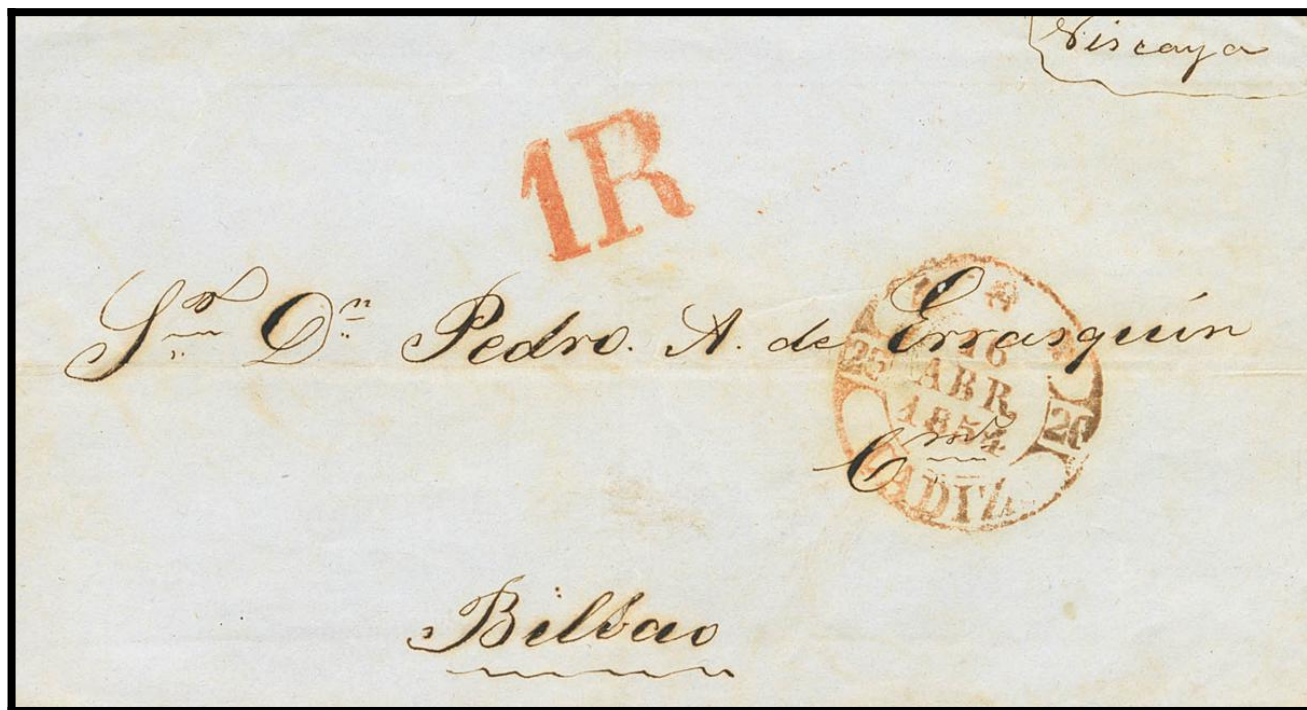 Viscaya
1R
Sr. Dn. Pedro. A. de Errasquin
25 16 20
ABR
1854
CADIZ
Bilbao